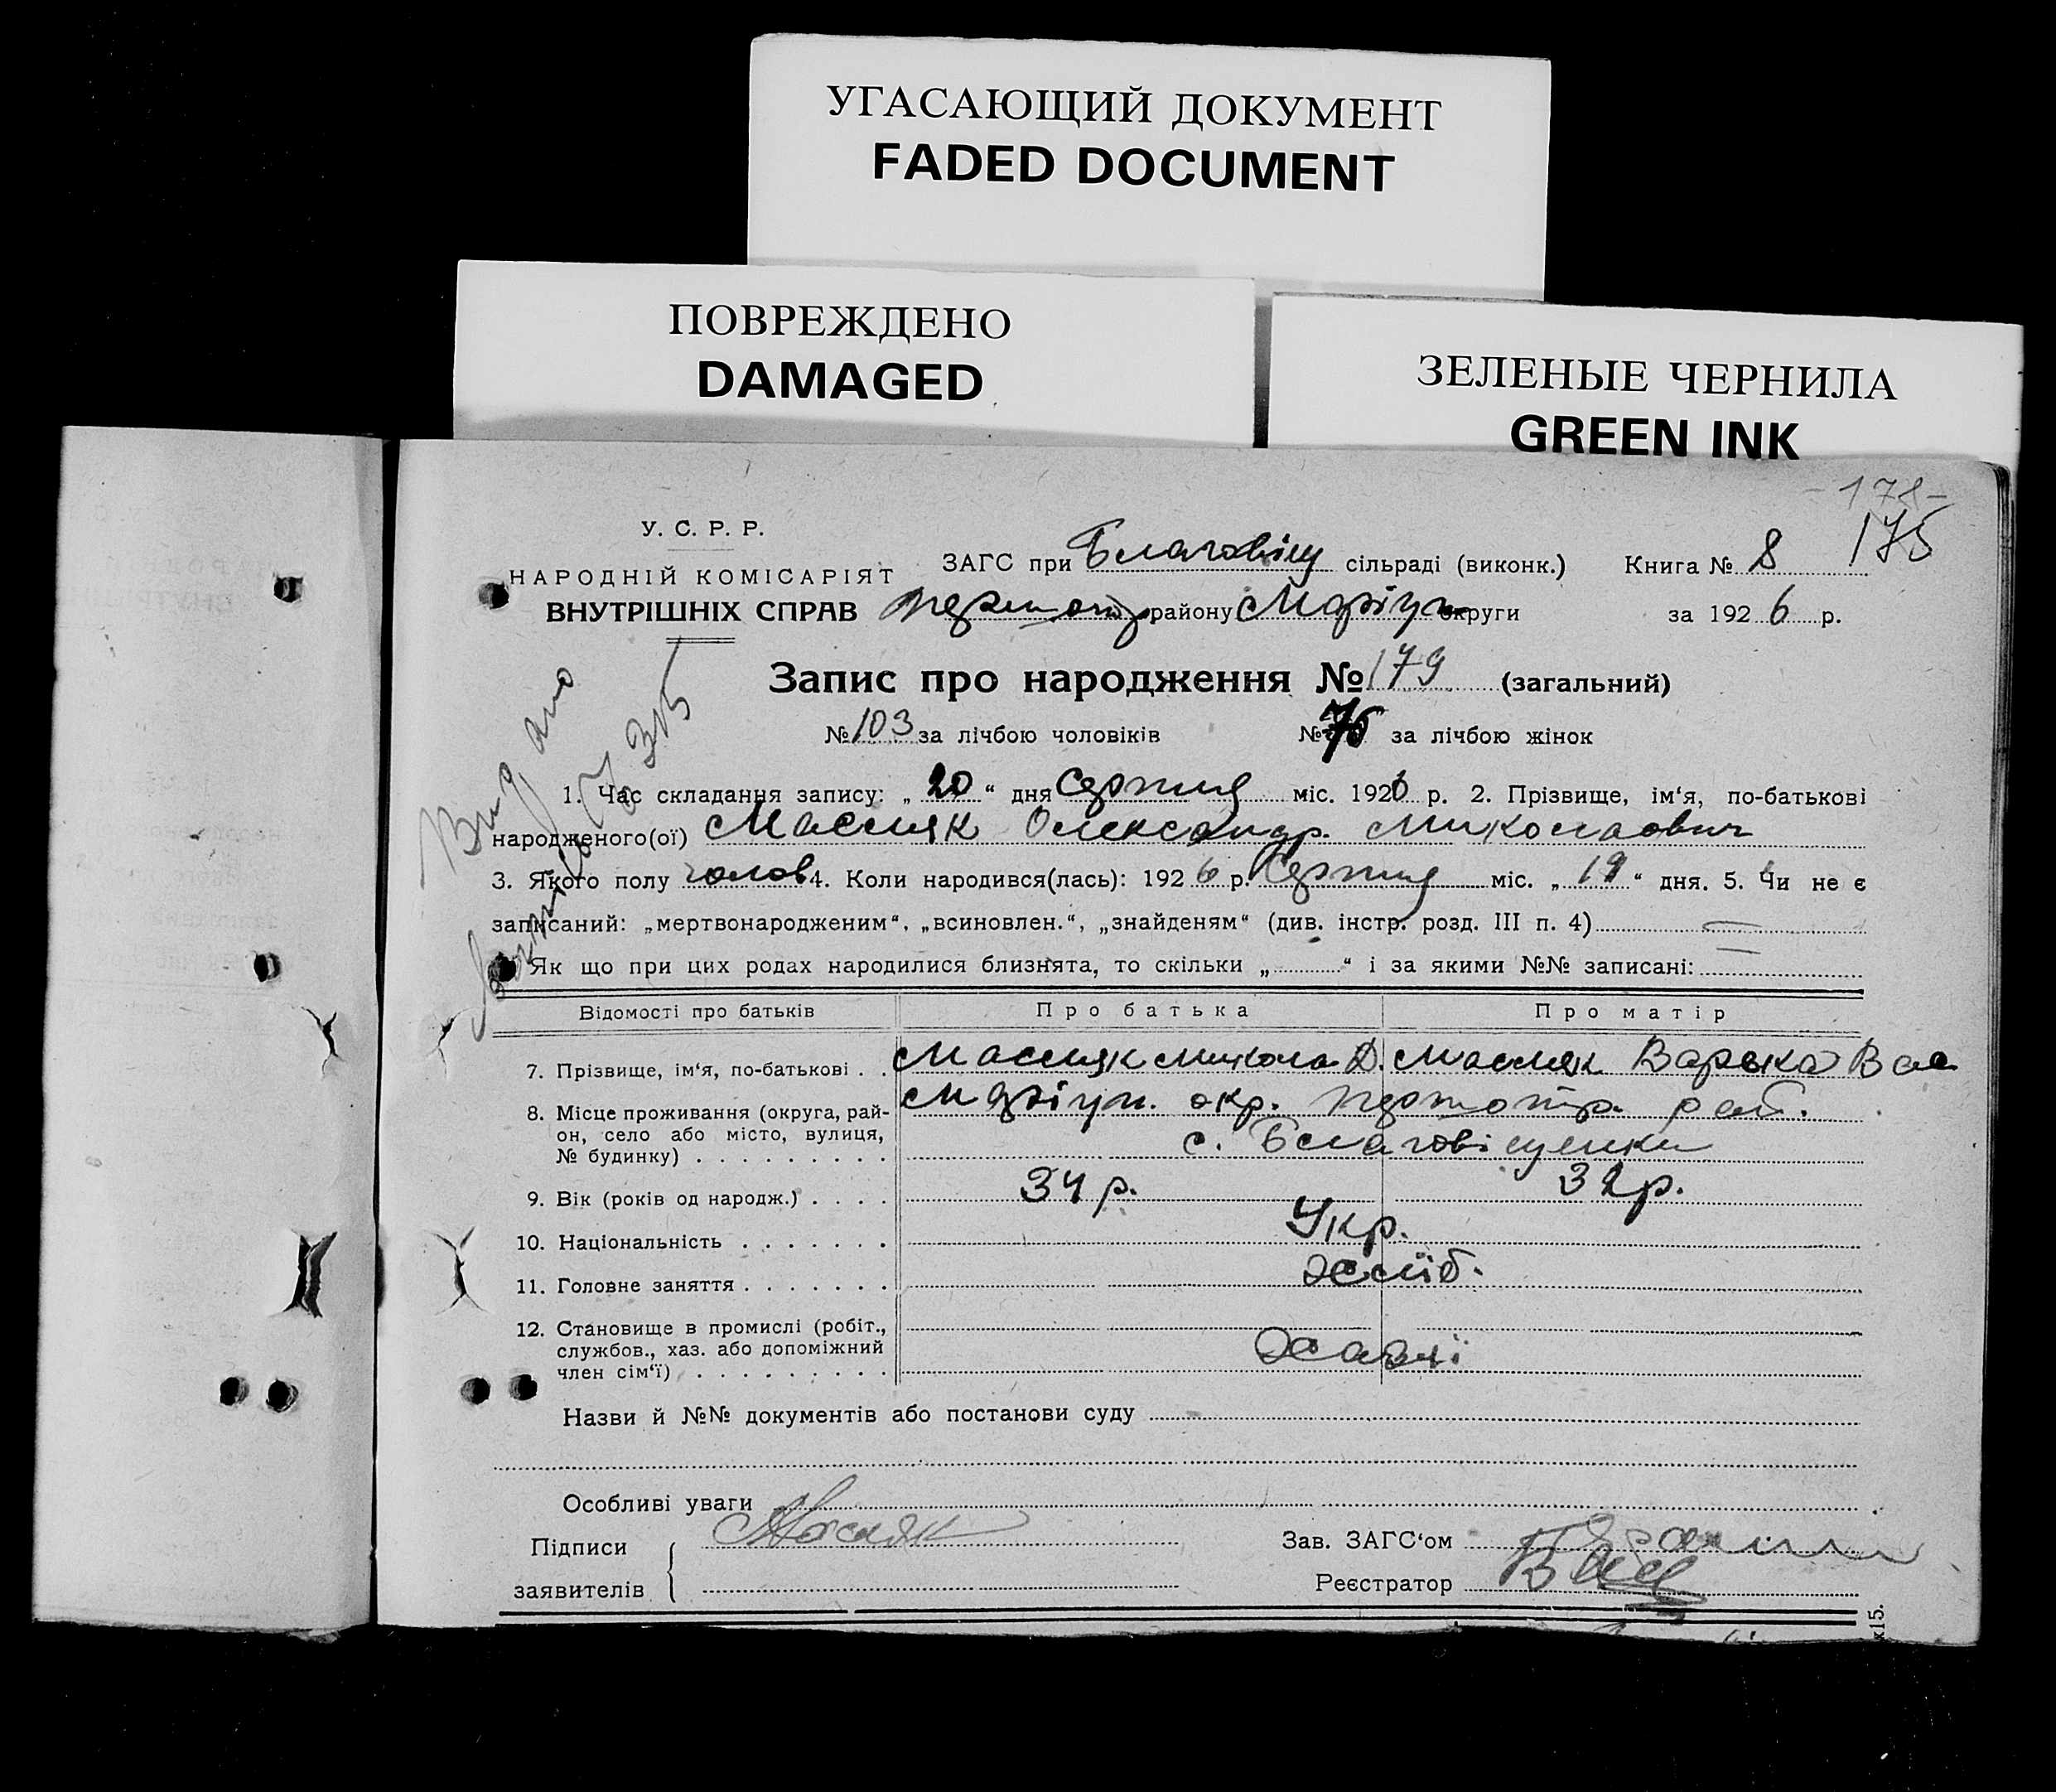 УГАСАЮЩИЙ ДОКУМЕНТ
FADED DOCUMENT
ПОВРЕЖДЕНО
DAMAGED
ЗЕЛЕНЫЕ ЧЕРНИЛА
GREEN INK
-178-
175
У. С. Р. Р.
НАРОДНІЙ КОМІСАРІЯТ
ВНУТРІШНІХ СПРАВ
ЗАГС при Благовіщ сільраді (виконк.) Книга № 8
району Маріуп округи за 1926 р.
Запис про народження № 179 (загальний)
№ 103 за лічбою чоловіків № 76 за лічбою жінок
Видано
1. Час складання запису: „20“ дня Серпня міс. 1926 р. 2. Прізвище, ім‘я, по-батькові
народженого(ої) Масляк Олександр. Миколаович
3. Якого полу чолов 4. Коли народився(лась): 1926 р. Серпня міс. „19“ дня. 5. Чи не є
записаний: „мертвонародженим“, „всиновлен.“, „знайденям“ (див. інстр. розд. III п. 4)
Як що при цих родах народилися близнята, то скільки „ “ і за якими №№ записані:
Відомості про батьків Про батька Про матір
7. Прізвище, ім‘я, по-батькові . . Масляк Микола Д. Масляк Варька Вас
8. Місце проживання (округа, рай- Маріуп. окр. рай.
он, село або місто, вулиця, с. Благовіщенки
№ будинку)
9. Вік (років од народж.) 34 р. 32 р.
10. Національність Укр.
11. Головне заняття хліб.
12. Становище в промислі (робіт.,
службов., хаз. або допоміжний Хазяї
член сім‘ї)
Назви й №№ документів або постанови суду
Особливі уваги
Підписи Масляк Зав. ЗАГС‘ом
заявителів Реєстратор
х15.